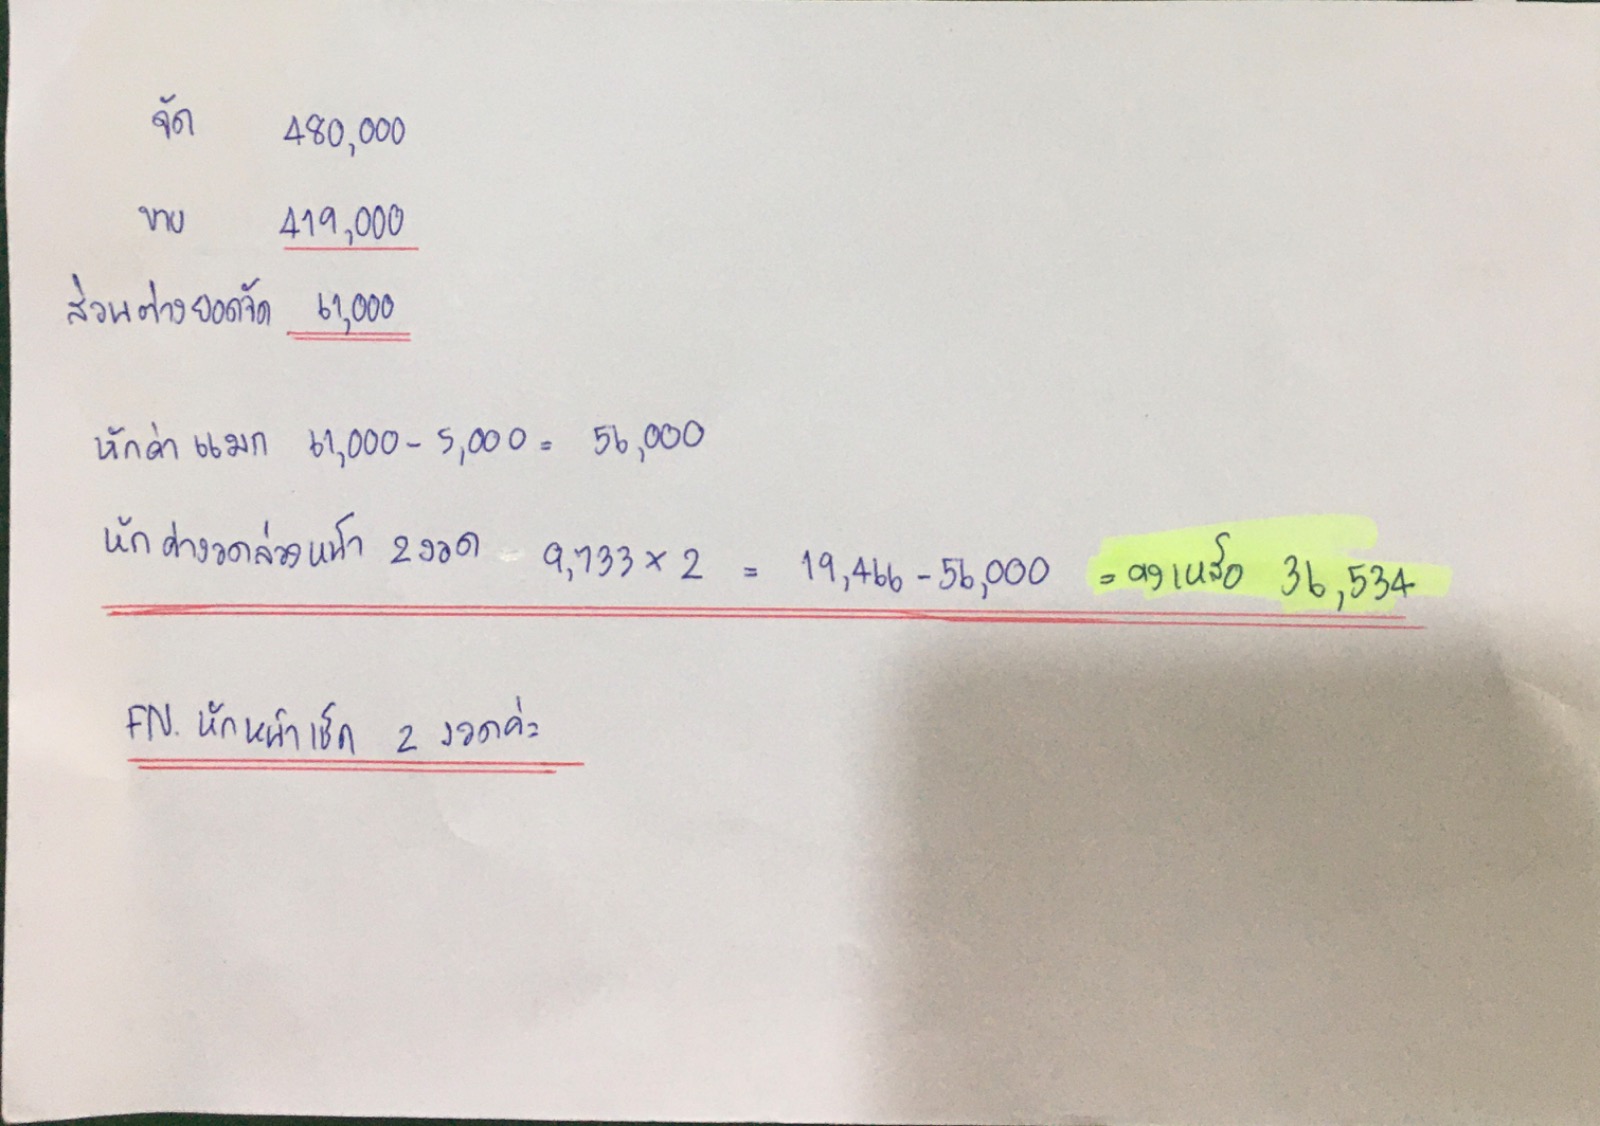 จัด 480,000
ขาย 419,000
ส่วนต่างยอดจัด 61,000
หักค่าแมก 61,000 - 5,000 = 56,000
หักค่างวดล่วงหน้า 2 งวด 9,733 × 2 = 19,466 - 56,000 = คงเหลือ 36,534
FN. หักหน้าเช็ค 2 งวดค่ะ